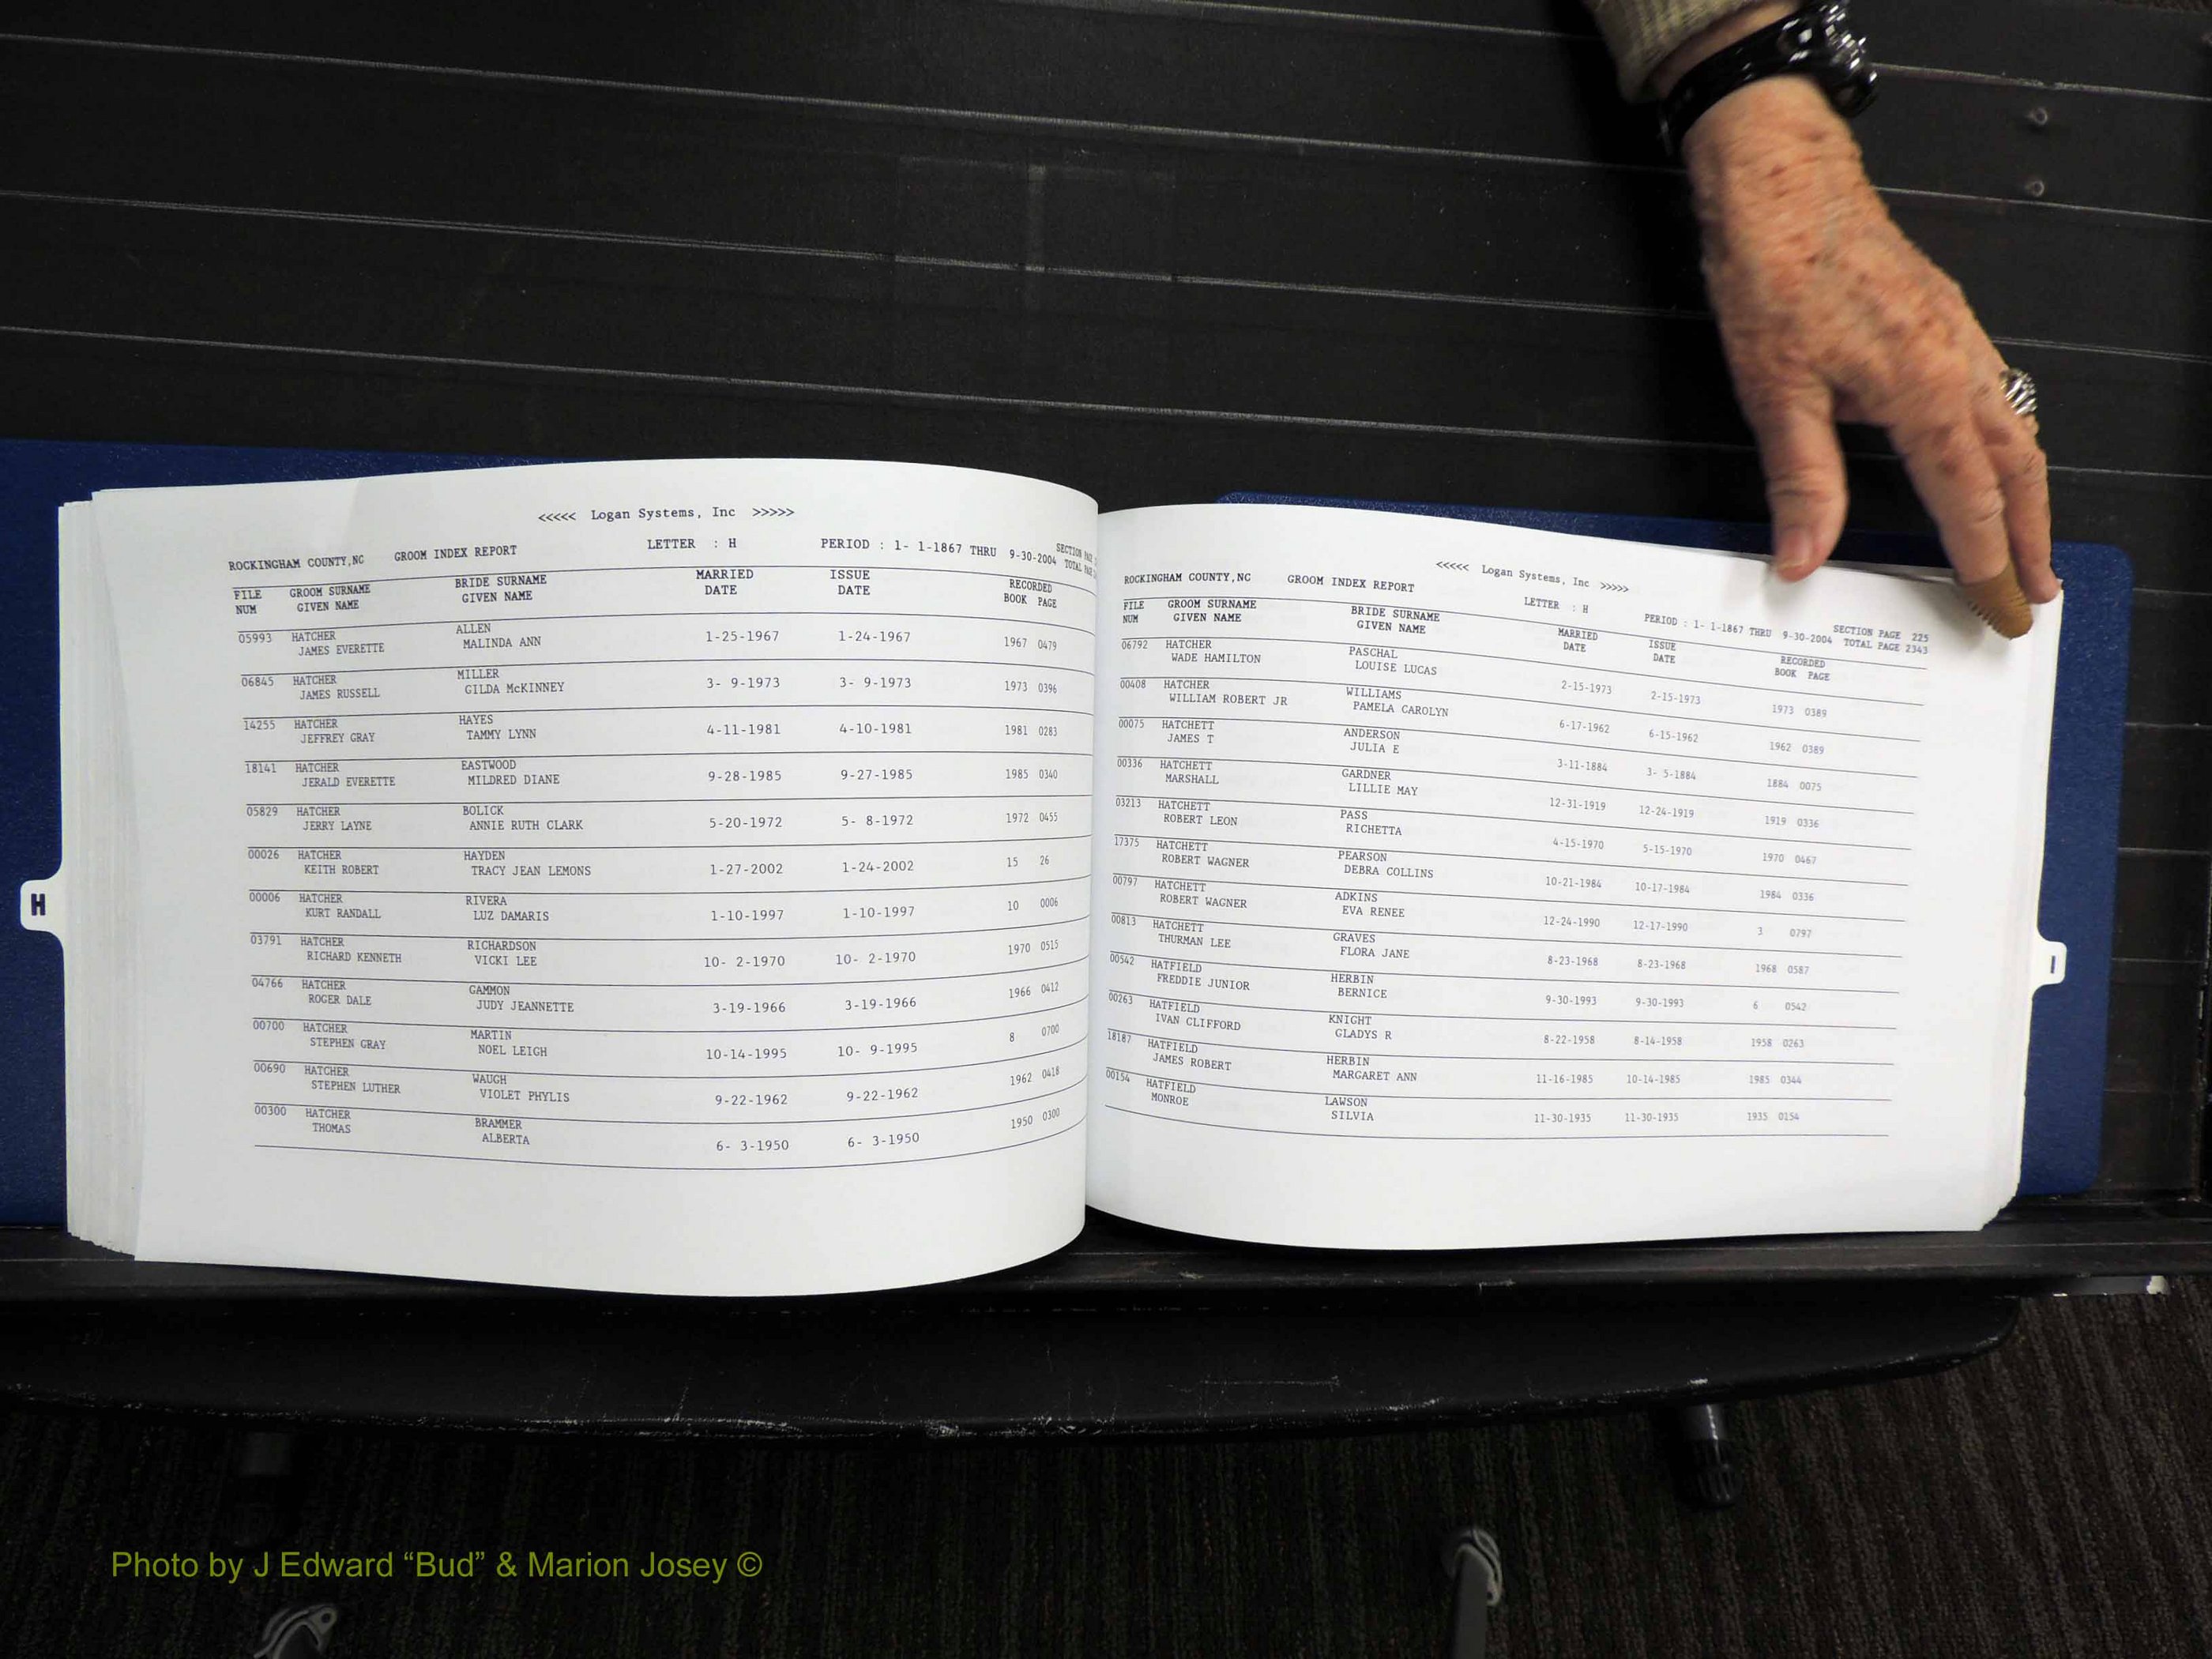 <<<<< Logan Systems, Inc >>>>>
ROCKINGHAM COUNTY,NC GROOM INDEX REPORT LETTER : H PERIOD : 1- 1-1867 THRU 9-30-2004 SECTION PAGE
TOTAL PAGE
FILE GROOM SURNAME BRIDE SURNAME MARRIED ISSUE RECORDED
NUM GIVEN NAME GIVEN NAME DATE DATE BOOK PAGE
05993 HATCHER ALLEN 1-25-1967 1-24-1967 1967 0479
JAMES EVERETTE MALINDA ANN
06845 HATCHER MILLER 3- 9-1973 3- 9-1973 1973 0396
JAMES RUSSELL GILDA McKINNEY
14255 HATCHER HAYES 4-11-1981 4-10-1981 1981 0283
JEFFREY GRAY TAMMY LYNN
18141 HATCHER EASTWOOD 9-28-1985 9-27-1985 1985 0340
JERALD EVERETTE MILDRED DIANE
05829 HATCHER BOLICK 5-20-1972 5- 8-1972 1972 0455
JERRY LAYNE ANNIE RUTH CLARK
00026 HATCHER HAYDEN 1-27-2002 1-24-2002 15 26
KEITH ROBERT TRACY JEAN LEMONS
00006 HATCHER RIVERA 1-10-1997 1-10-1997 10 0006
KURT RANDALL LUZ DAMARIS
03791 HATCHER RICHARDSON 10- 2-1970 10- 2-1970 1970 0515
RICHARD KENNETH VICKI LEE
04766 HATCHER GAMMON 3-19-1966 3-19-1966 1966 0412
ROGER DALE JUDY JEANNETTE
00700 HATCHER MARTIN 10-14-1995 10- 9-1995 8 0700
STEPHEN GRAY NOEL LEIGH
00690 HATCHER WAUGH 9-22-1962 9-22-1962 1962 0418
STEPHEN LUTHER VIOLET PHYLIS
00300 HATCHER BRAMMER 6- 3-1950 6- 3-1950 1950 0300
THOMAS ALBERTA
H
<<<<< Logan Systems, Inc >>>>>
ROCKINGHAM COUNTY,NC GROOM INDEX REPORT LETTER : H PERIOD : 1- 1-1867 THRU 9-30-2004 SECTION PAGE 225
TOTAL PAGE 2343
FILE GROOM SURNAME BRIDE SURNAME MARRIED ISSUE RECORDED
NUM GIVEN NAME GIVEN NAME DATE DATE BOOK PAGE
06792 HATCHER PASCHAL 2-15-1973 2-15-1973 1973 0389
WADE HAMILTON LOUISE LUCAS
00408 HATCHER WILLIAMS 6-17-1962 6-15-1962 1962 0389
WILLIAM ROBERT JR PAMELA CAROLYN
00075 HATCHETT ANDERSON 3-11-1884 3- 5-1884 1884 0075
JAMES T JULIA E
00336 HATCHETT GARDNER 12-31-1919 12-24-1919 1919 0336
MARSHALL LILLIE MAY
03213 HATCHETT PASS 4-15-1970 5-15-1970 1970 0467
ROBERT LEON RICHETTA
17375 HATCHETT PEARSON 10-21-1984 10-17-1984 1984 0336
ROBERT WAGNER DEBRA COLLINS
00797 HATCHETT ADKINS 12-24-1990 12-17-1990 3 0797
ROBERT WAGNER EVA RENEE
00813 HATCHETT GRAVES 8-23-1968 8-23-1968 1968 0587
THURMAN LEE FLORA JANE
00542 HATFIELD HERBIN 9-30-1993 9-30-1993 6 0542
FREDDIE JUNIOR BERNICE
00263 HATFIELD KNIGHT 8-22-1958 8-14-1958 1958 0263
IVAN CLIFFORD GLADYS R
18187 HATFIELD HERBIN 11-16-1985 10-14-1985 1985 0344
JAMES ROBERT MARGARET ANN
00154 HATFIELD LAWSON 11-30-1935 11-30-1935 1935 0154
MONROE SILVIA
I
Photo by J Edward “Bud” & Marion Josey ©